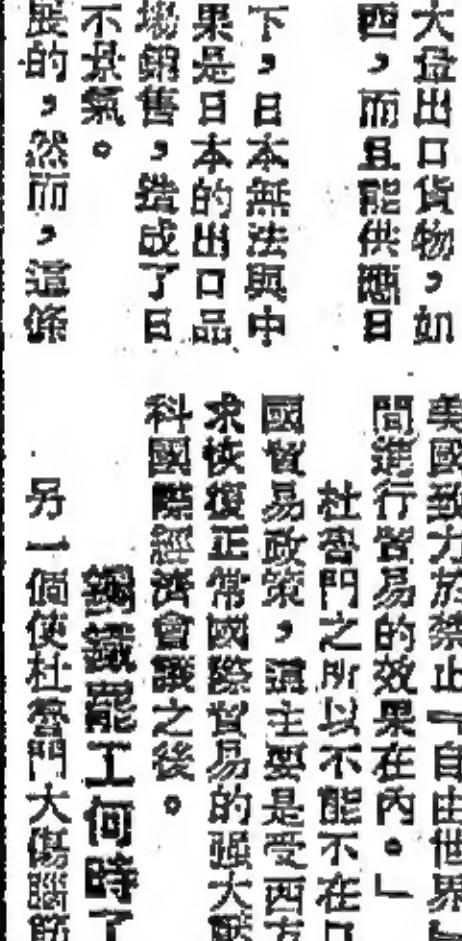 大量出口貨物，如
西，而且能供應日
下，日本無法與中
果是日本的出口品
場銷售，造成了日
不景氣。
展的，然而，這條
美國致力於禁止「自由世界」
間進行貿易的效果在內。」
杜魯門之所以不能不在
國貿易政策，這主要是受西方
求恢復正常國際貿易的强大壓
科國際經濟會議之後。
鋼鐵罷工何時了
另一個使杜魯門大傷腦筋